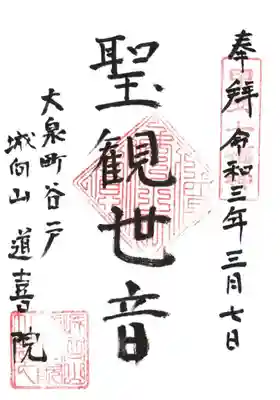 奉拝 令和三年三月七日
聖観世音
大泉町谷戸
城向山 道喜院